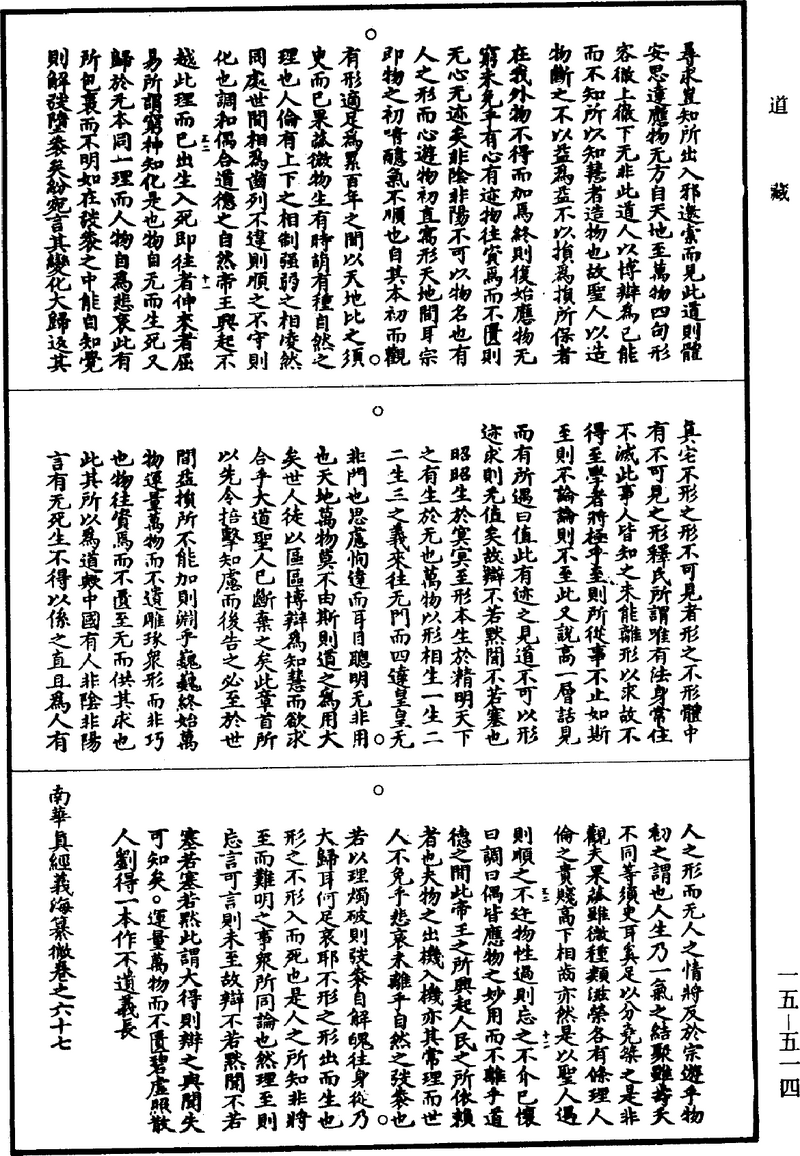 道藏
尋求豈知所出入邪邀索而見此道則體
安思達應物无方自天地至萬物四句形
容徹上徹下无非此道人以博辯爲已能
而不知所以知慧者造物也故聖人以造
物斷之不以益爲益不以損爲損所保者
在我外物不得而加焉終則復始應物无
窮未免乎有心有迹物往資焉而不匱則
无心无迹矣非陰非陽不可以物名也有
人之形而心遊物初直寓形天地間耳宗
即物之初喑醷氣不順也自其本初而觀
有形適足爲累百年之間以天地比之須
臾而已果蓏微物生有時萌有種自然之
理也人倫有上下之相制强弱之相凌然
同處世間相爲齒列不違則順之不守則
化也調和偶合道德之自然帝王興起不
越此理而已出生入死即往者伸來者屈
易所謂窮神知化是也物自无而生死又
歸於无本同一理而人物自爲悲哀此有
所包裹而不明如在弢袠之中能自知覺
則解弢墮袠矣紛宛言其變化大歸返其
真宅不形之形不可見者形之不形體中
有不可見之形釋氏所謂唯有法身常住
不滅此事人皆知之未能離形以求故不
得至學者將極乎至則所從事不止如斯
至則不論論則不至此又說高一層話見
而有所遇曰值此有迹之見道不可以形
迹求則无值矣故辯不若黙聞不若塞也
昭昭生於冥冥至形本生於精明天下
之有生於无也萬物以形相生一生二
二生三之義來往无門而四達皇皇无
非門也思慮恂達而耳目聰明无非用
也天地萬物莫不由斯則道之爲用大
矣世人徒以區區博辯爲知慧而欲求
合乎大道聖人已斷棄之矣此章首所
以先令掊擊知慮而後告之必至於世
間益損所不能加則淵乎巍巍終始萬
物運量萬物而不遺雕琢衆形而非巧
也物往資焉而不匱至无而供其求也
此其所以爲道歟中國有人非陰非陽
言有无死生不得以係之直且爲人有
人之形而无人之情將反於宗遊乎物
初之謂也人生乃一氣之結聚雖壽夭
不同等須臾耳奚足以分堯桀之是非
觀夫果蓏雖微種類滋榮各有條理人
倫之貴賤高下相齒亦然是以聖人遇
則順之不迕物性過則忘之不介已懷
曰調曰偶皆應物之妙用而不離乎道
德之間此帝王之所興起人民之所依賴
者也夫物之出機入機亦其常理而世
人不免乎悲哀未離乎自然之弢袠也
若以理燭破則弢袠自解魄往身從乃
大歸耳何足哀耶不形之形出而生也
形之不形入而死也是人之所知非將
至而難明之事衆所同論也然理至則
忘言可言則未至故辯不若黙聞不若
塞若塞若黙此謂大得則辯之與聞失
可知矣。運量萬物而不匱碧虛照散
人劉得一本作不遺義長
南華真經義海纂微卷之六十七
一五—五一四